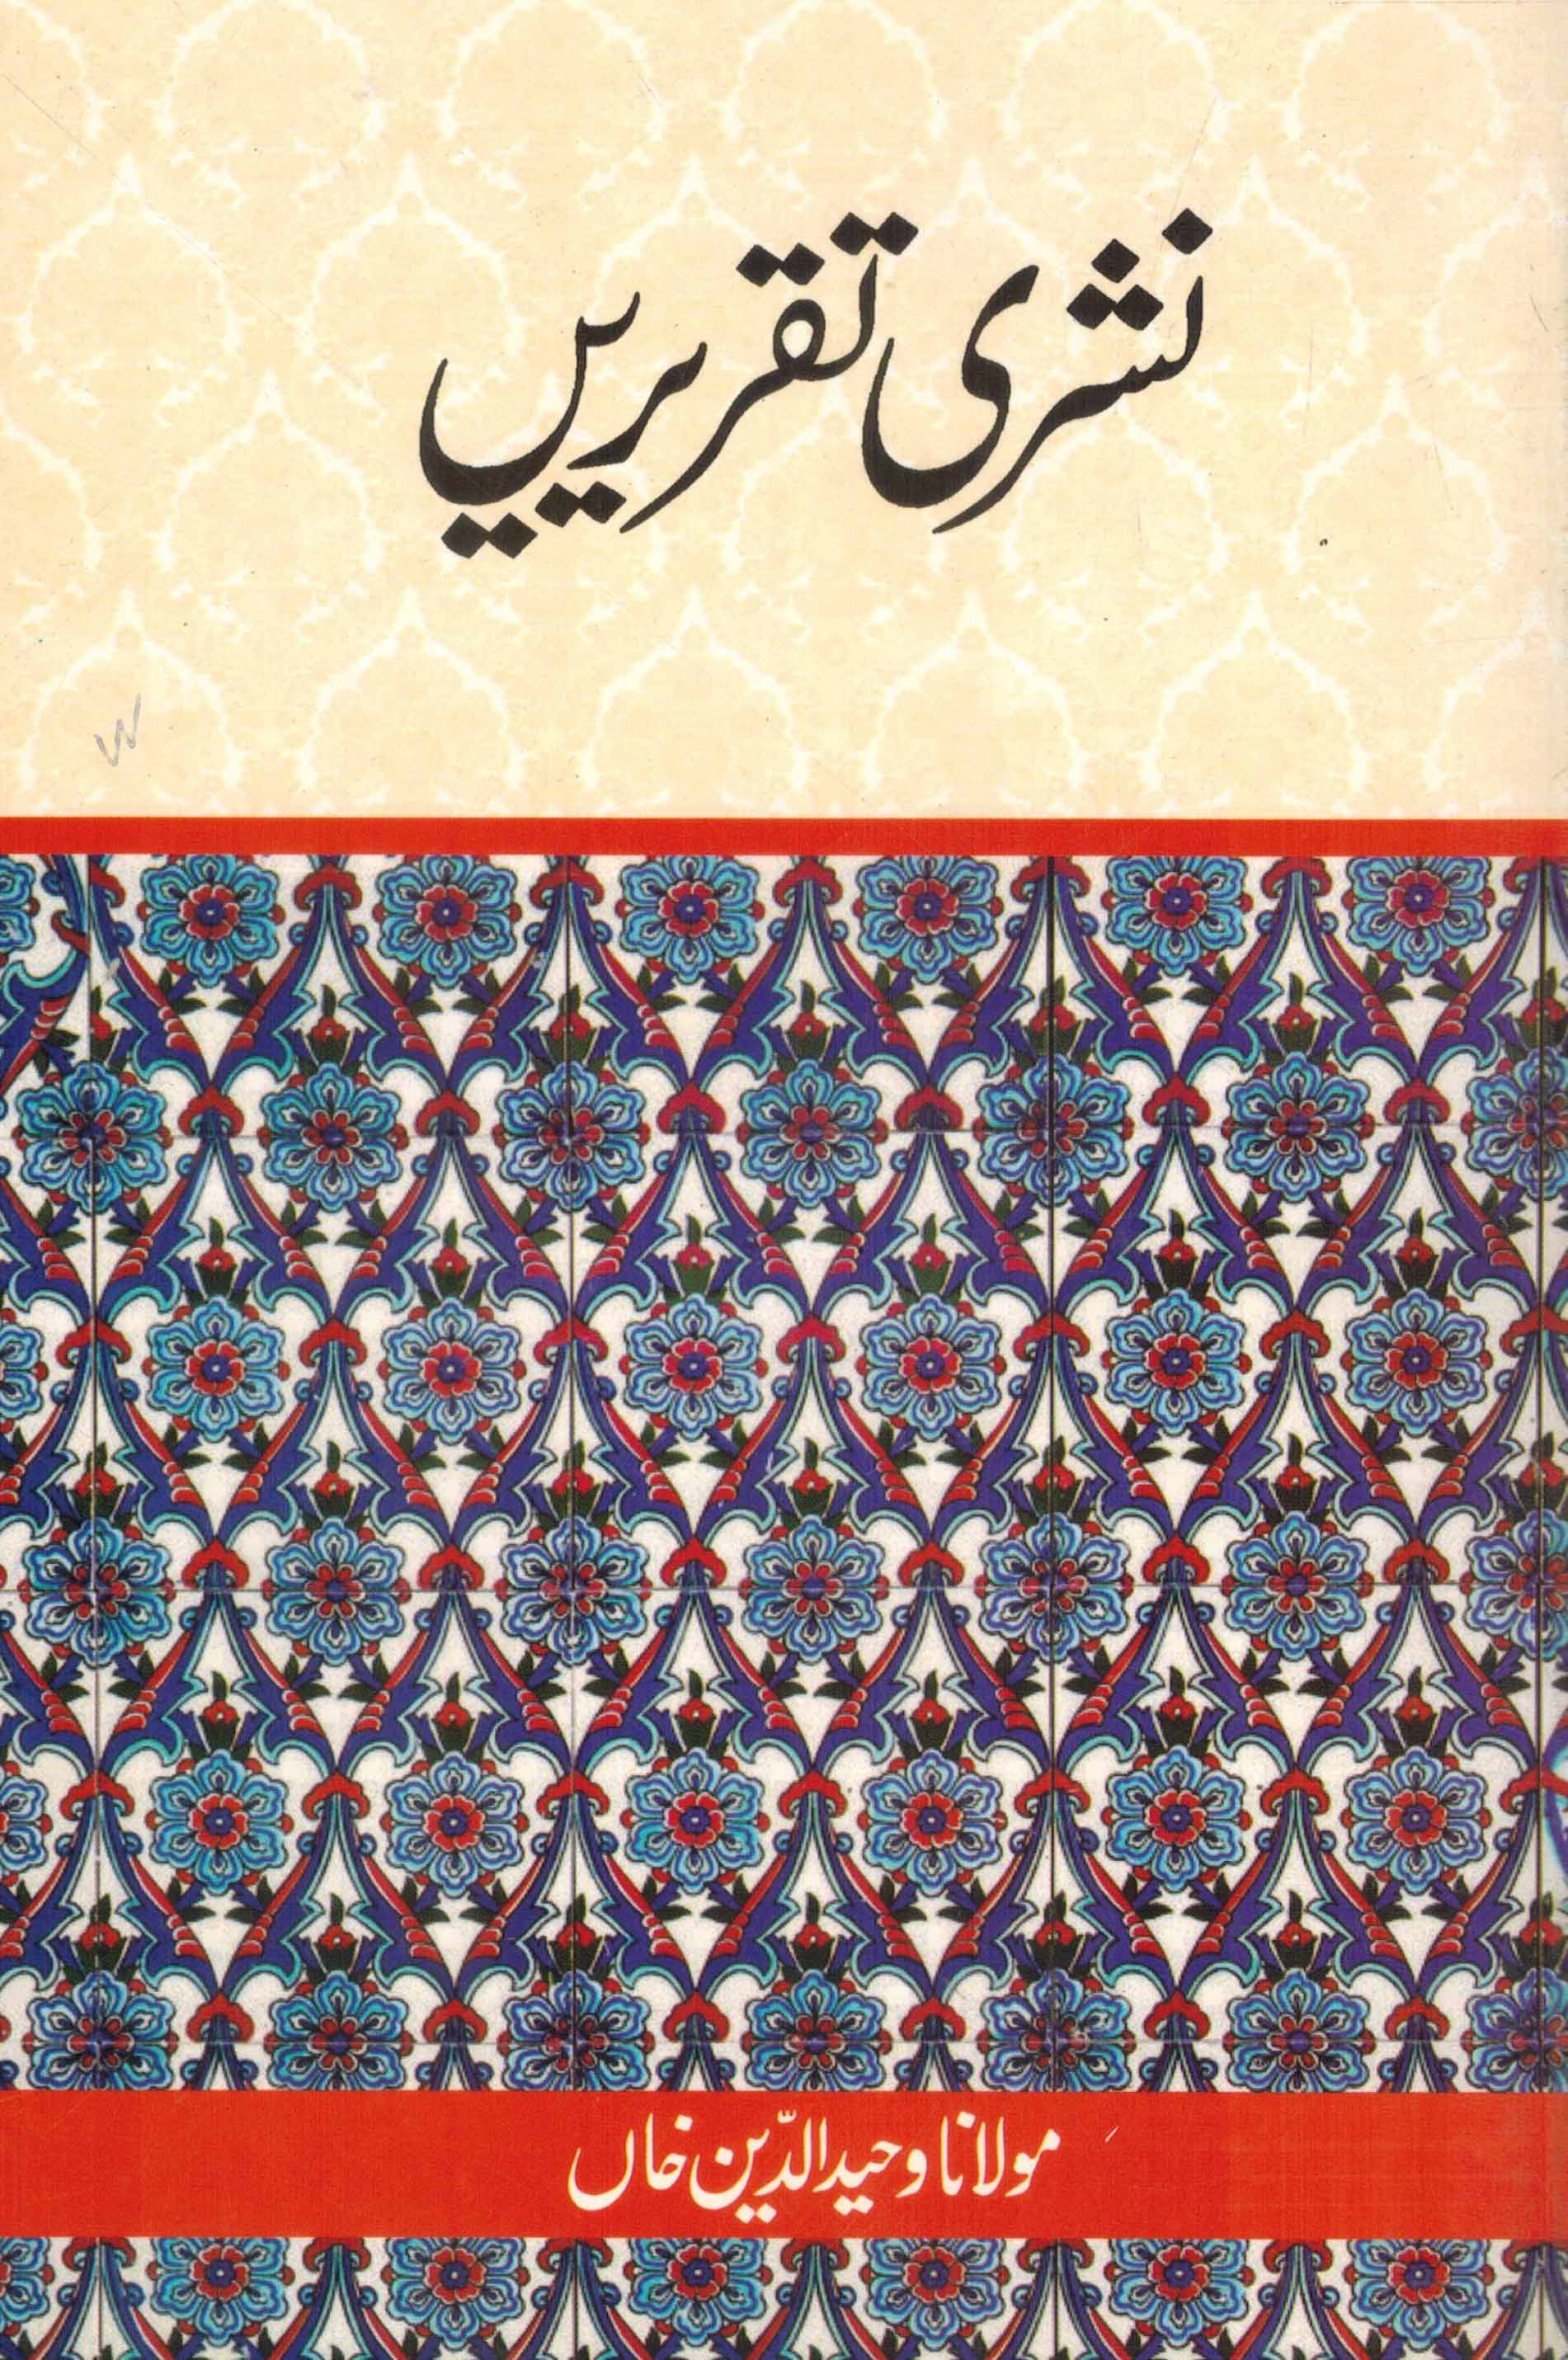 نشری تقریریں
مولانا وحید الدّین خاں